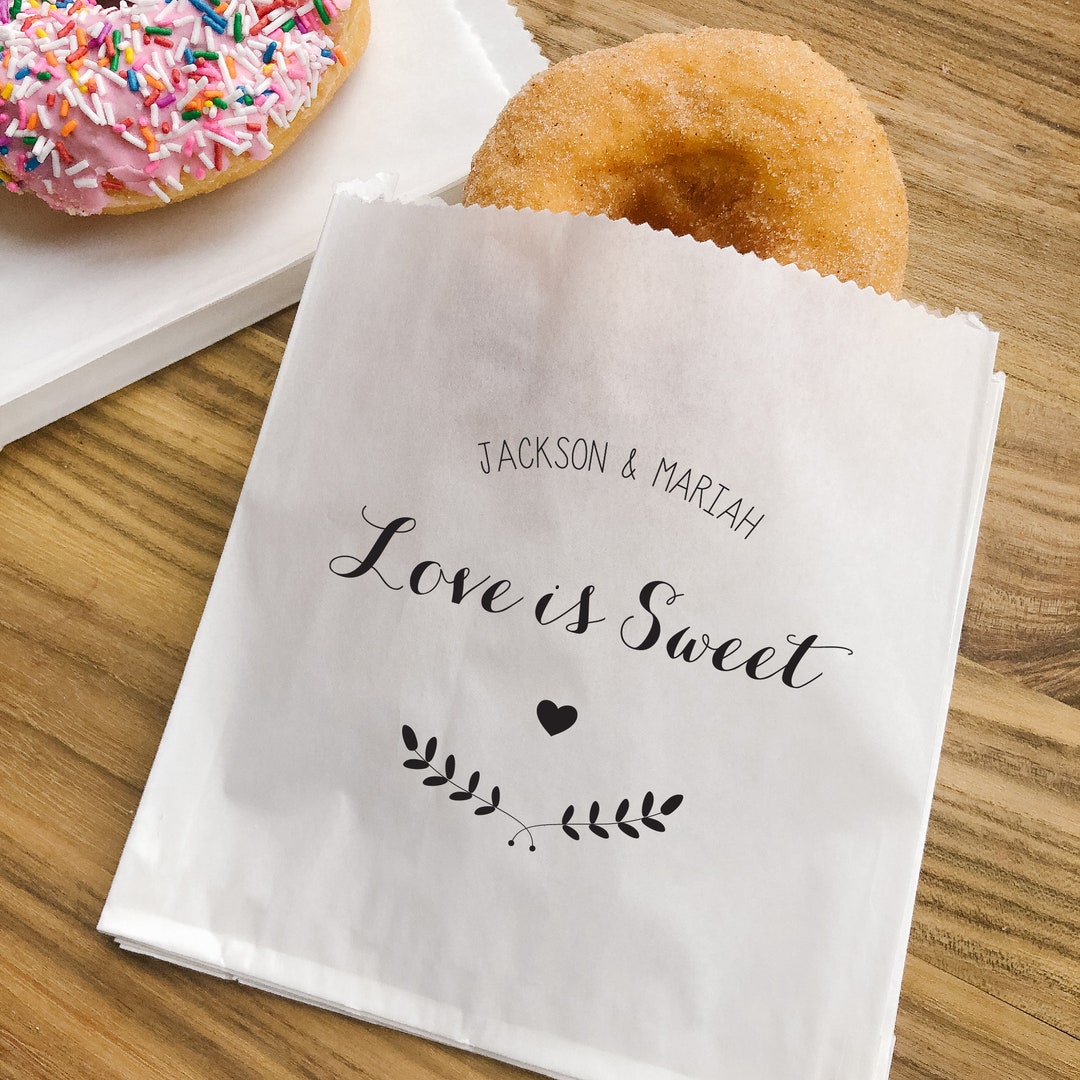 JACKSON & MARIAH
Love is Sweet